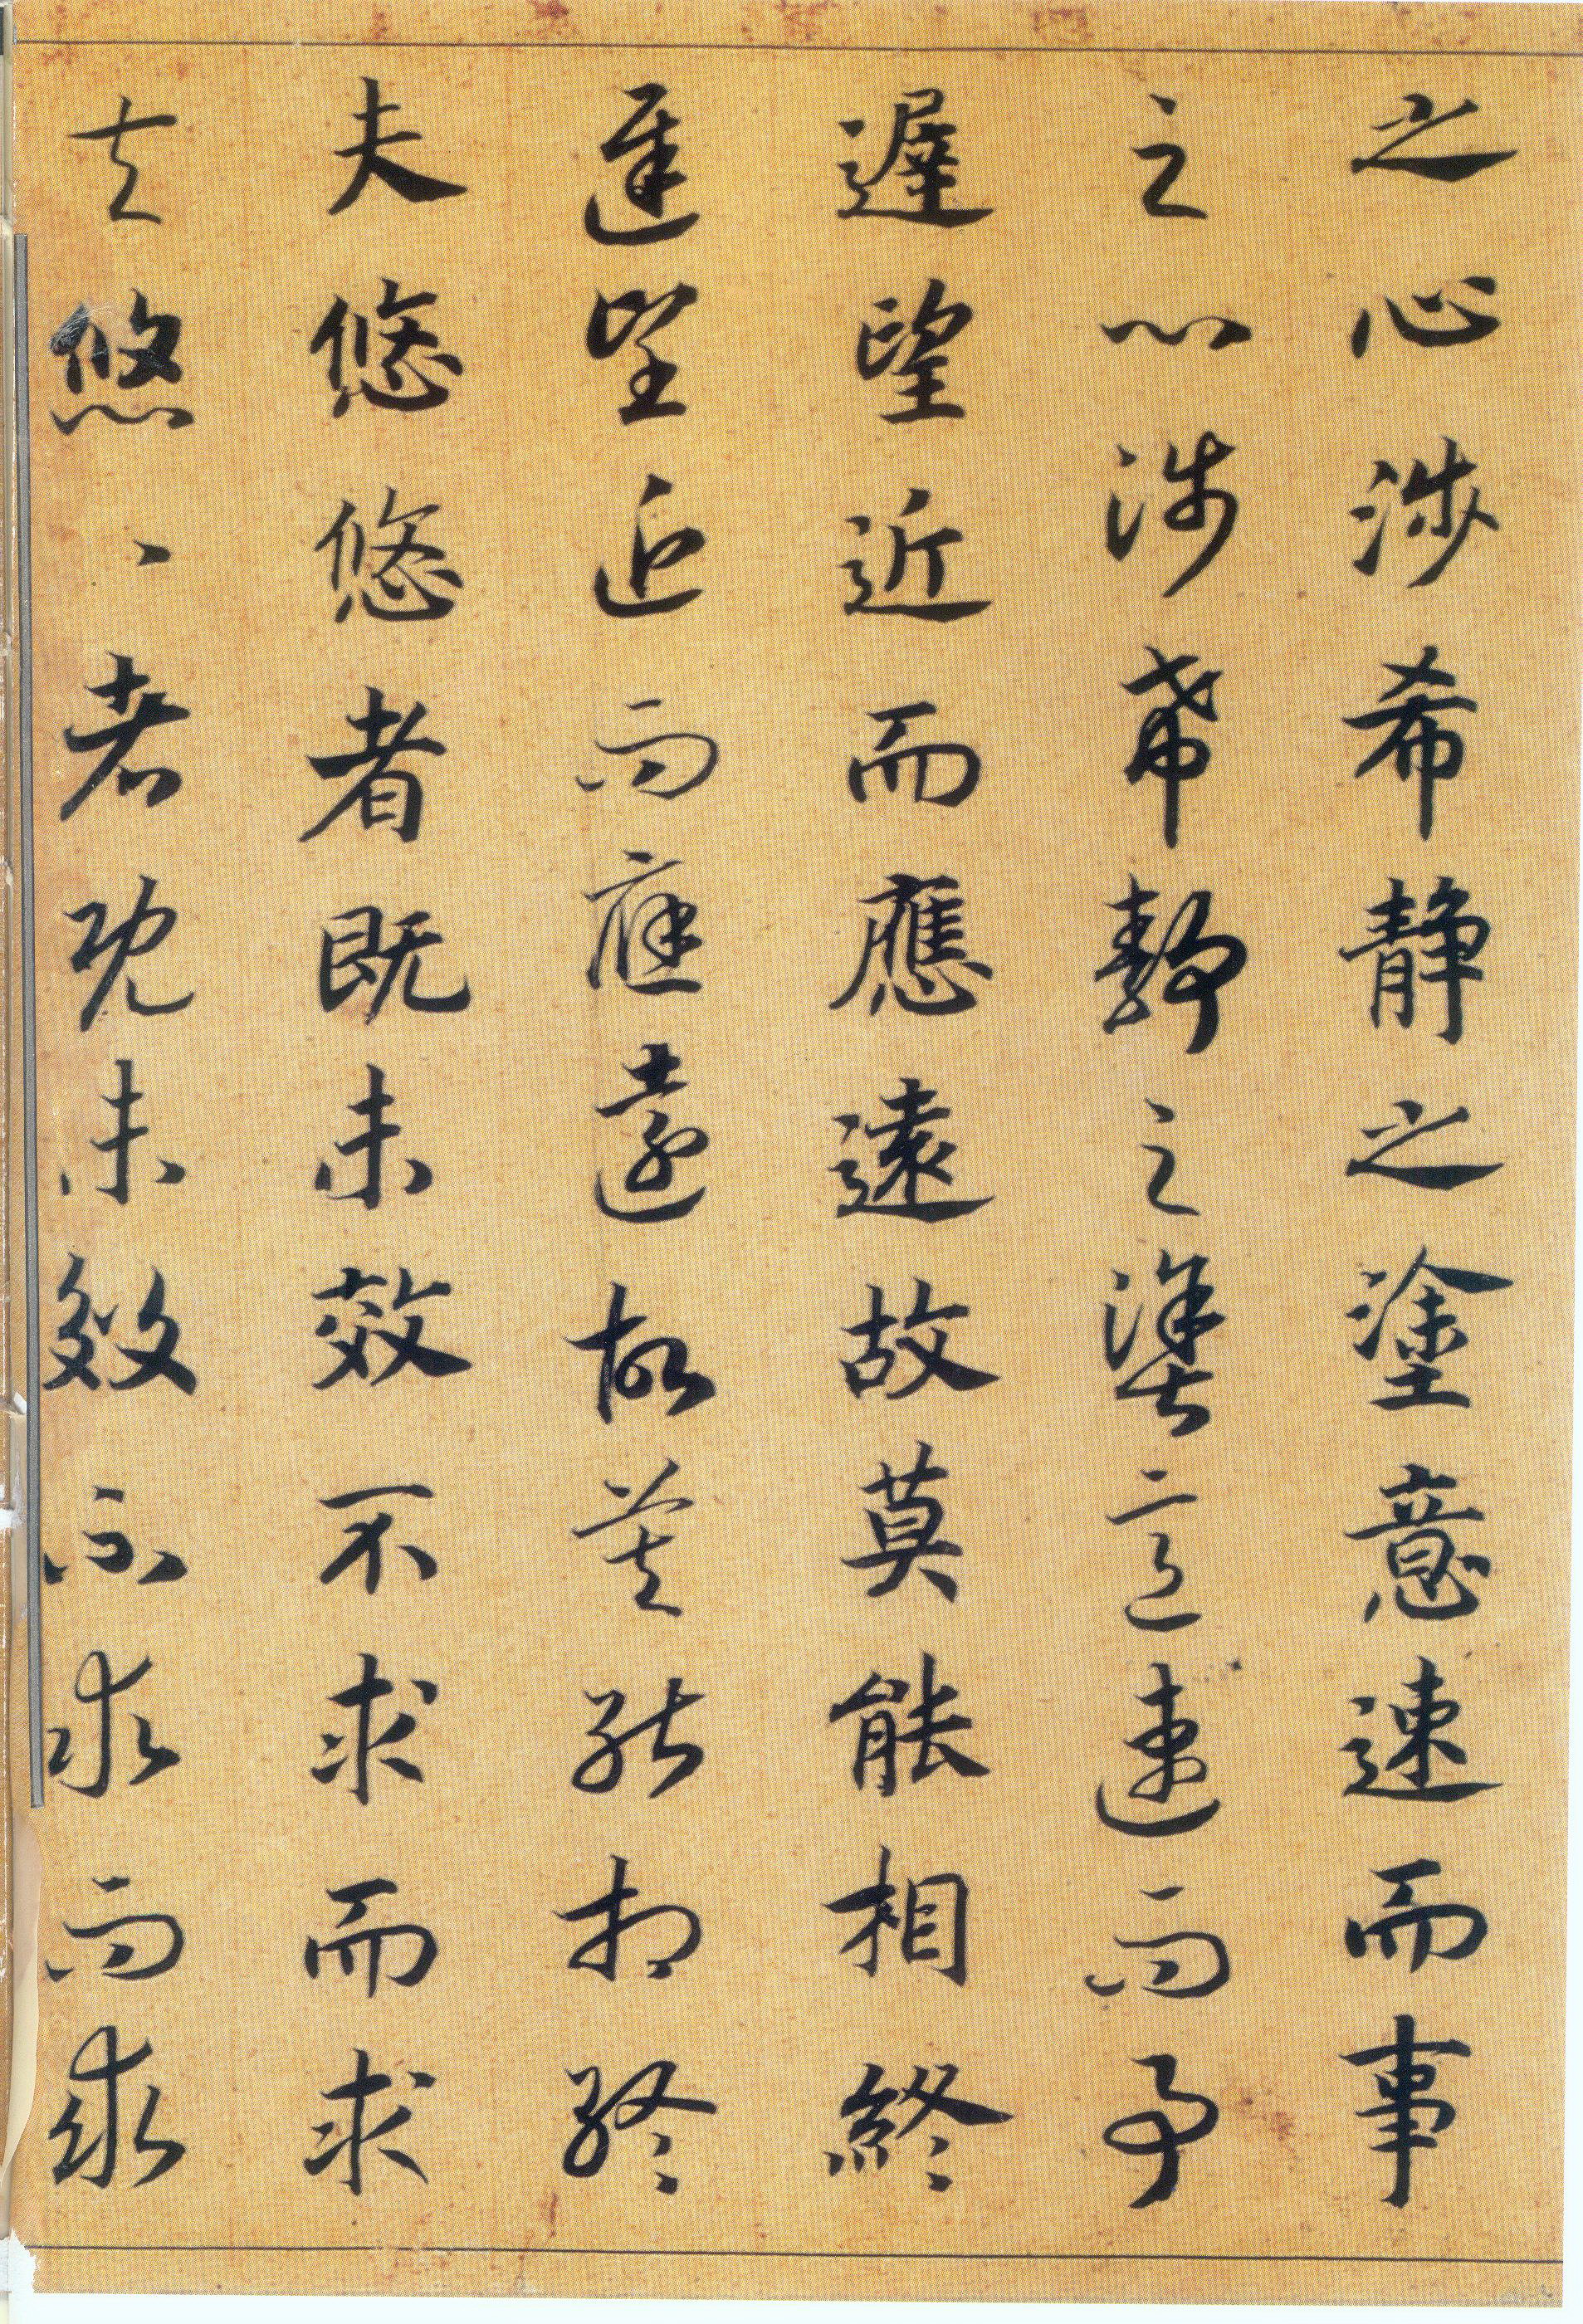 之心涉希静之塗意速而事
之心涉希靜之塗意速而事
遲望近而應遠故莫能相終
遲望近而應遠故莫能相終
夫悠悠者既未效不求而求
夫悠、者既未效不求而求